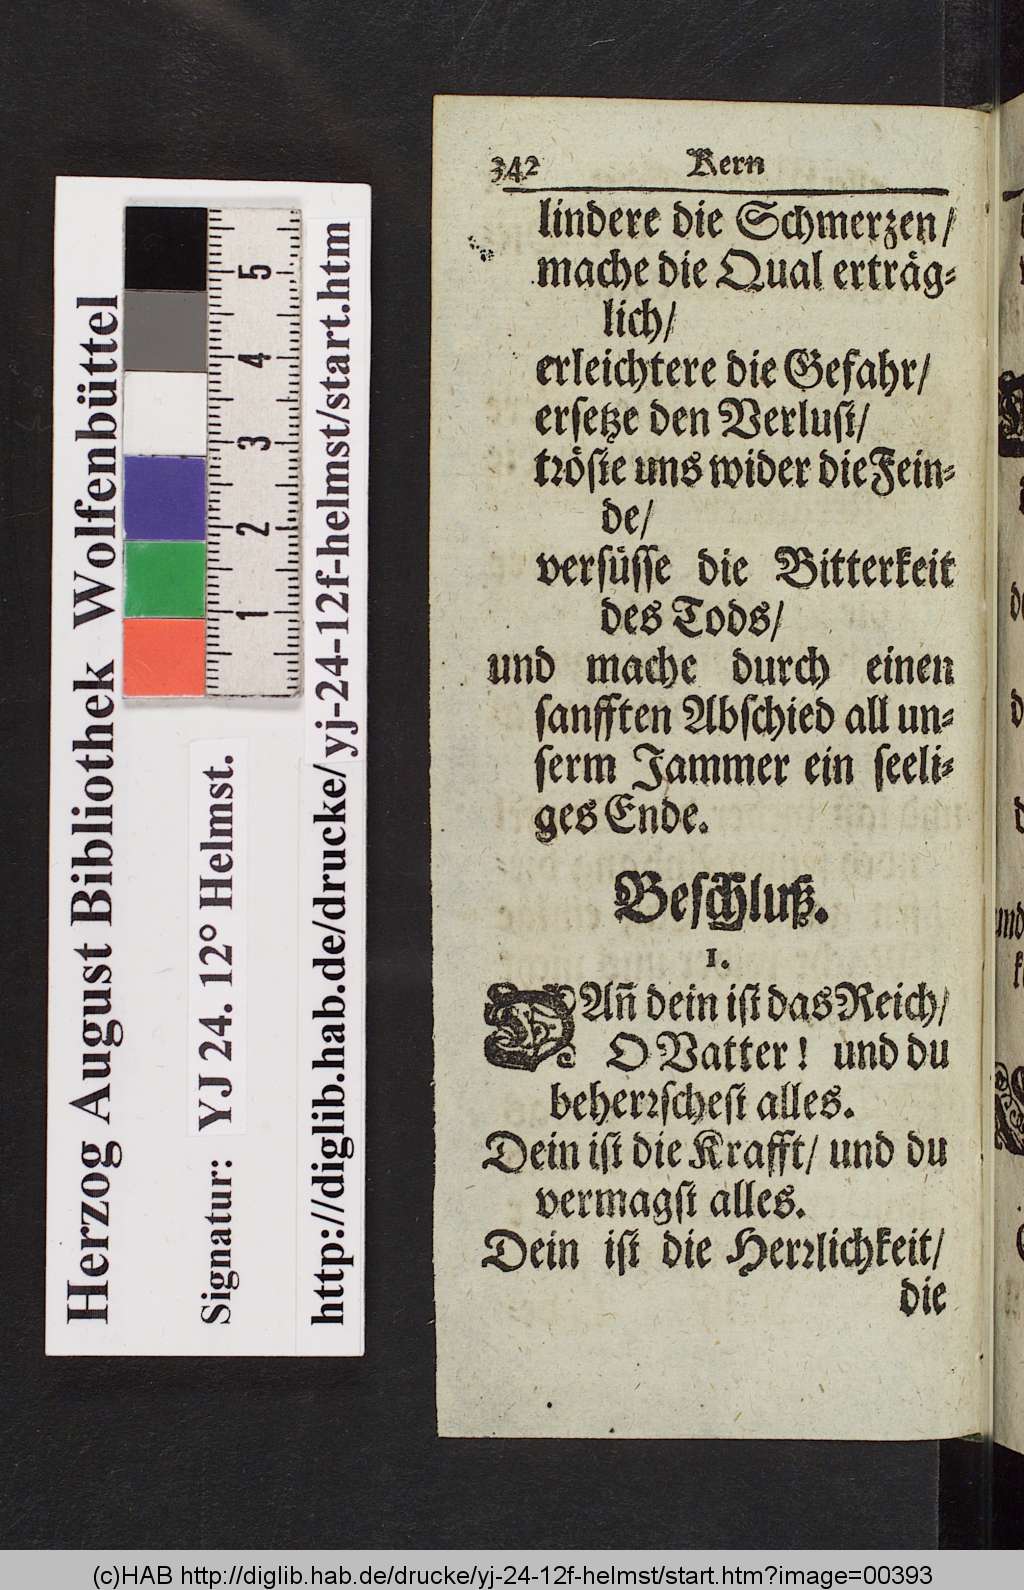 Herzog August Bibliothek Wolfenbüttel
Signatur: YJ 24. 12° Helmst.
http://diglib.hab.de/drucke/yj-24-12f-helmst/start.htm
1 2 3 4 5
342 Kern
lindere die Schmerzen/
mache die Qual erträg⸗
lich/
erleichtere die Gefahr/
ersetze den Verlust/
tröste uns wider die Fein⸗
de/
versüsse die Bitterkeit
des Tods/
und mache durch einen
sanfften Abschied all un⸗
serm Jammer ein seeli⸗
ges Ende.
Beschluß.
1.
DAñ dein ist das Reich/
O Vatter! und du
beherrschest alles.
Dein ist die Krafft/ und du
vermagst alles.
Dein ist die Herrlichkeit/
die
(c)HAB http://diglib.hab.de/drucke/yj-24-12f-helmst/start.htm?image=00393